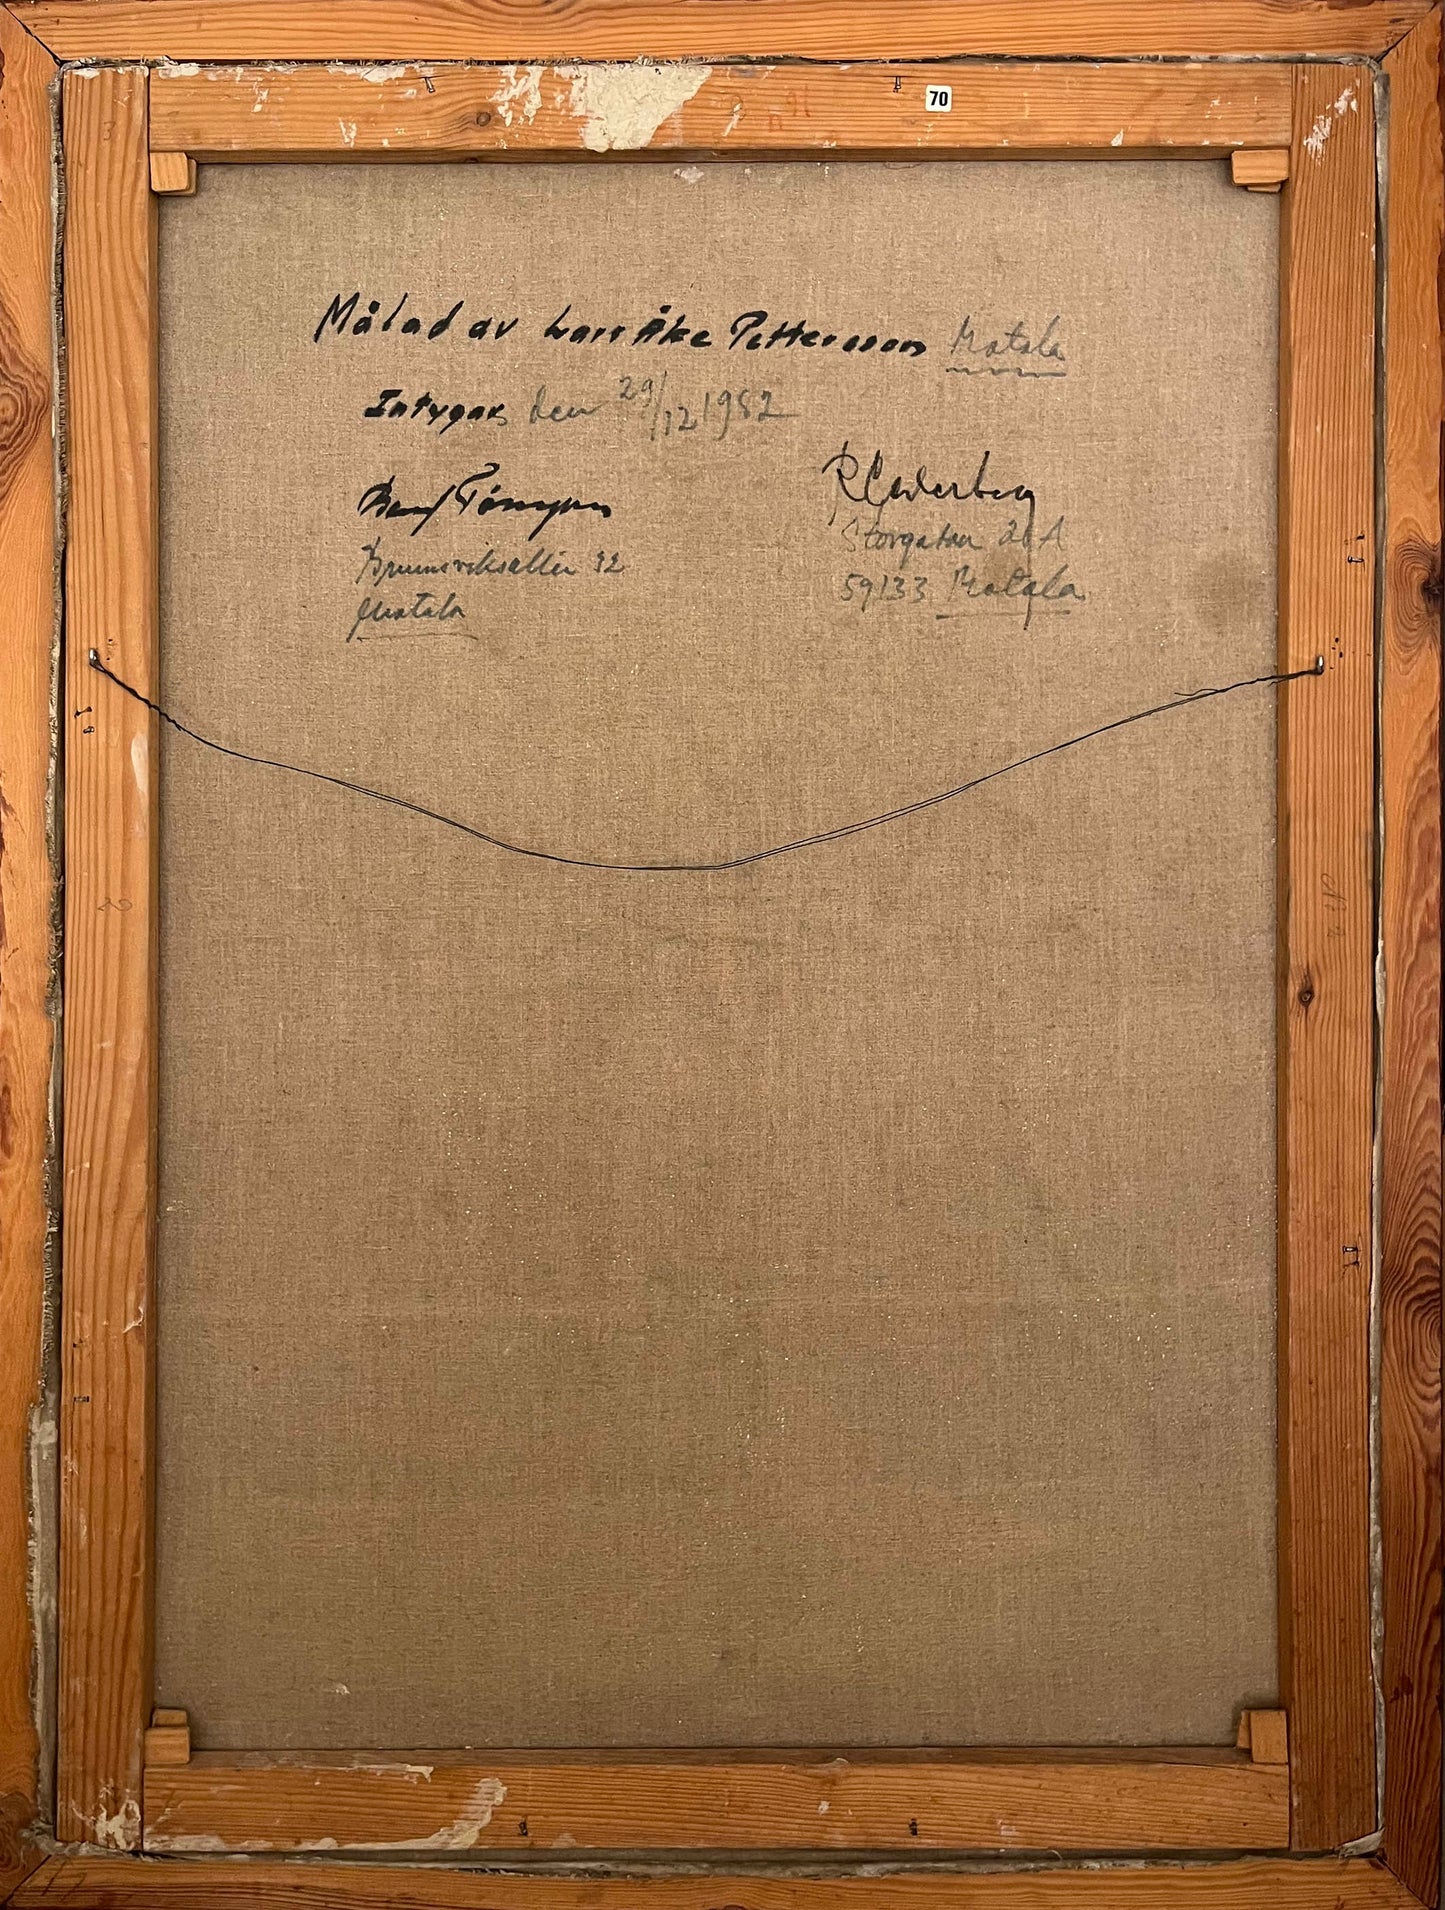 70
Målad av Lars Åke Pettersson Motala
Intygas den 29/12 1982
Bengt
R Cederberg
Storgatan 20A
Brunnsviksallén 32
59133 Motala
Motala